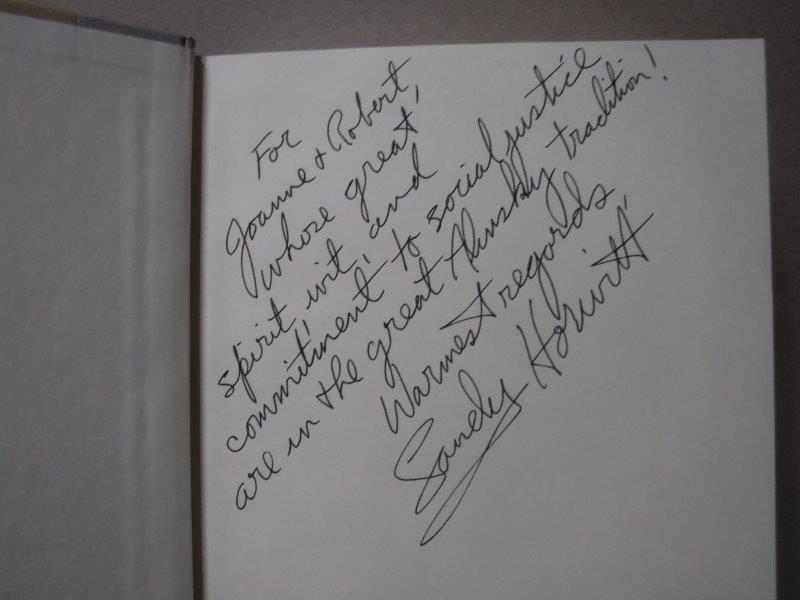 For
Joanne & Robert,
whose great
spirit, wit, and
commitment to social justice
are in the great Alinsky tradition!
Warmest regards,
Sandy Horwitt